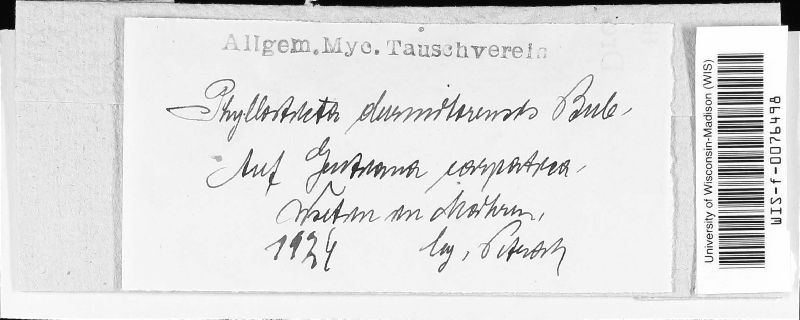 Allgem. Myc. Tauschverein
Phyllosticta durmitorensis Bub.
Auf Gentiana carpatica.
Wsetin in Mähren.
1924 leg. Petrak
University of Wisconsin-Madison (WIS)
WIS-f-0076498